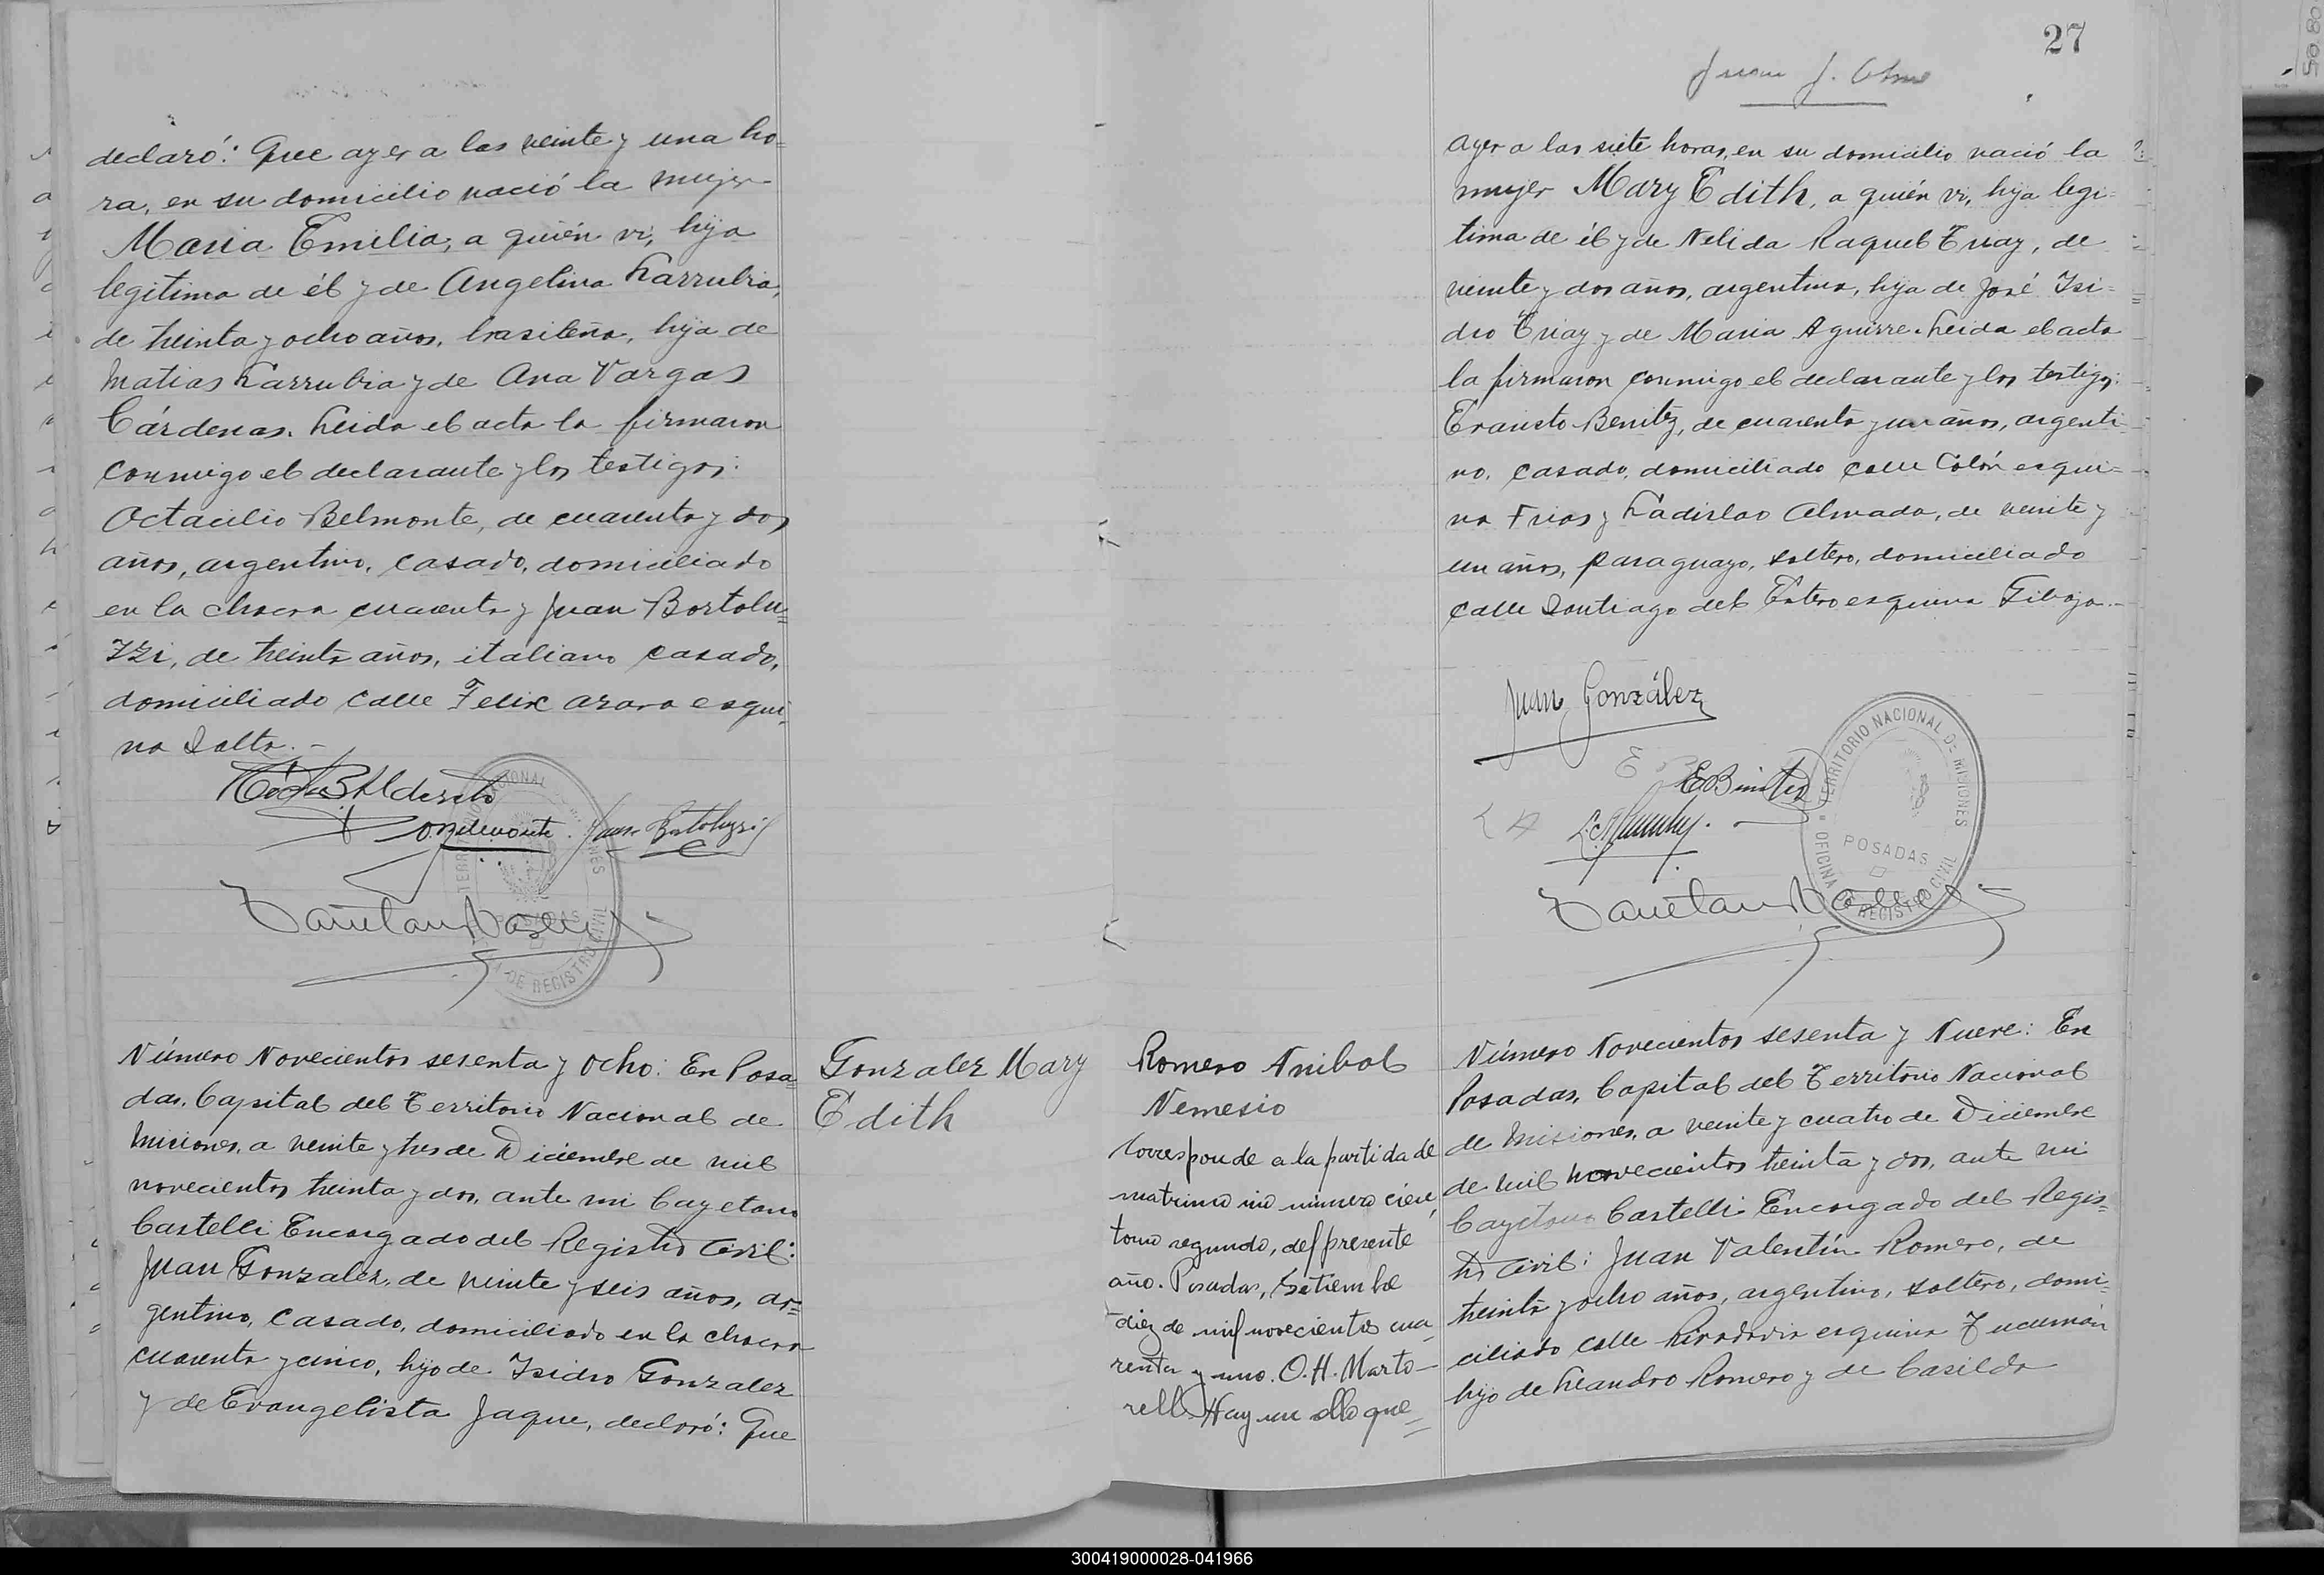 declaró: Que ayer a las veinte y una ho=
ra, en su domicilio nació la mujer
Maria Emilia, a quién vi, hija
legitima de él y de Angelina Larrubia,
de treinta y ocho años, brasileña, hija de
Matias Larrubia y de Ana Vargas
Cárdenas. Leida el acta la firmaron
conmigo el declarante y los testigos:
Octacilio Belmonte, de cuarenta y dos
años, argentino, casado, domiciliado
en la chacra cuarenta y Juan Bortolu=
zzi, de treinta años, italiano casado,
domiciliado calle Felix Azara esqui=
na Salta.-
Juan Bortoluzzi
TERRITORIO NACIONAL DE MISIONES
POSADAS
OFICINA DE REGISTRO CIVIL
Número Novecientos sesenta y ocho: En Posa=
das, Capital del Territorio Nacional de
Misiones, a veinte y tres de Diciembre de mil
novecientos treinta y dos, ante mi Cayetano
Castelli Encargado del Registro Civil:
Juan Gonzalez, de veinte y seis años, ar=
gentino, casado, domiciliado en la chacra
cuarenta y cinco, hijo de Isidro Gonzalez
y de Evangelista Jaque, declaró: Que
Gonzalez Mary
Edith
27
Juan J.
ayer a las siete horas, en su domicilio nació la
mujer Mary Edith, a quién vi, hija legi=
tima de él y de Nelida Raquel Triay, de
veinte y dos años, argentina, hija de José Isi=
dro Triay y de Maria Aguirre. Leida el acta
la firmaron conmigo el declarante y los testigos:
Evaristo Benitez, de cuarenta y un años, argenti=
no, casado, domiciliado calle Colón esqui=
na Frias y Ladislao Almada, de veinte y
un años, paraguayo, soltero, domiciliado
calle Santiago del Estero esquina Tibaja.-
Juan González
E B
EBenitez
L A
TERRITORIO NACIONAL DE MISIONES
POSADAS
OFICINA DE REGISTRO CIVIL
Romero Anibal
Nemesio
Corresponde a la partida de
matrimonio número cien,
tomo segundo, del presente
año. Posadas, Setiembre
diez de mil novecientos cua=
renta y uno. O. H. Marto-
rell. Hay un sello que=
Número Novecientos sesenta y Nueve: En
Posadas, Capital del Territorio Nacional
de Misiones, a veinte y cuatro de Diciembre
de mil novecientos treinta y dos, ante mi
Cayetano Castelli Encargado del Regis=
tro Civil: Juan Valentín Romero, de
treinta y ocho años, argentino, soltero, domi=
ciliado calle Rivadavia esquina Tucumán
hijo de Leandro Romero y de Casilda
300419000028-041966